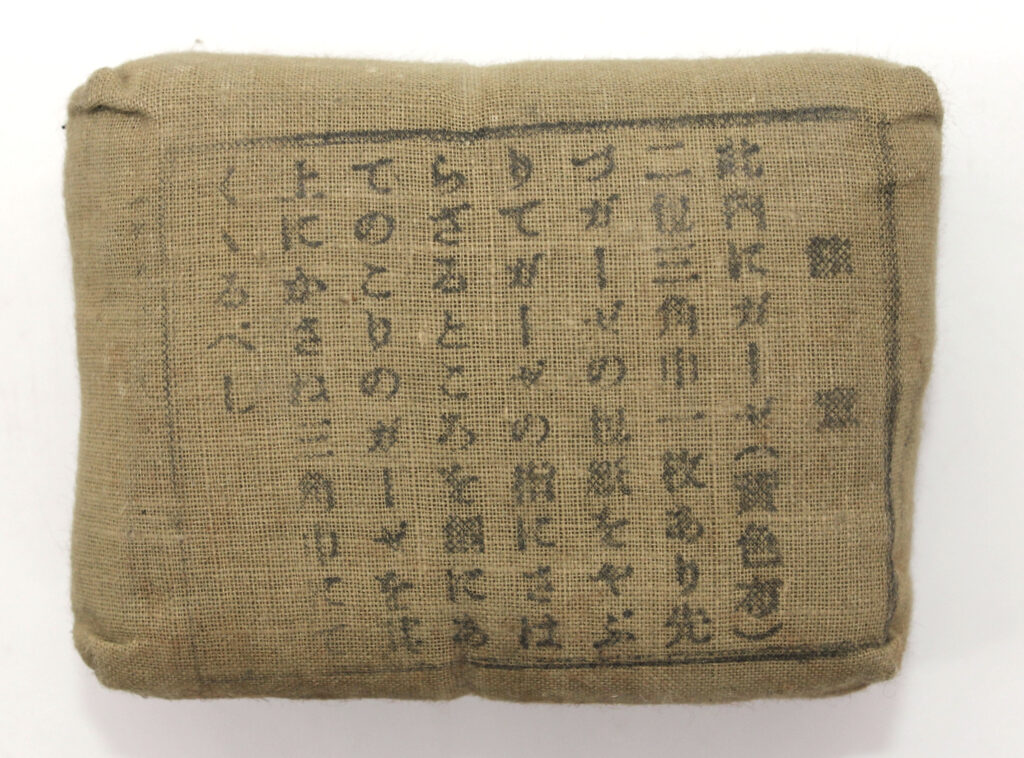 此内にガーゼ(黃色布)
二包三角巾一枚あり先
づガーゼの包紙をやぶ
りてガーゼの指にさは
らざるところを創にあ
てのこりのガーゼを其
上にかさね三角巾にて
くゝるべし